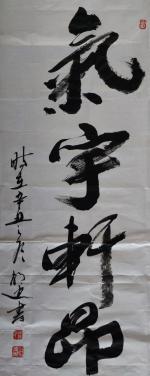 氣宇軒昂
時在辛丑之夏
書